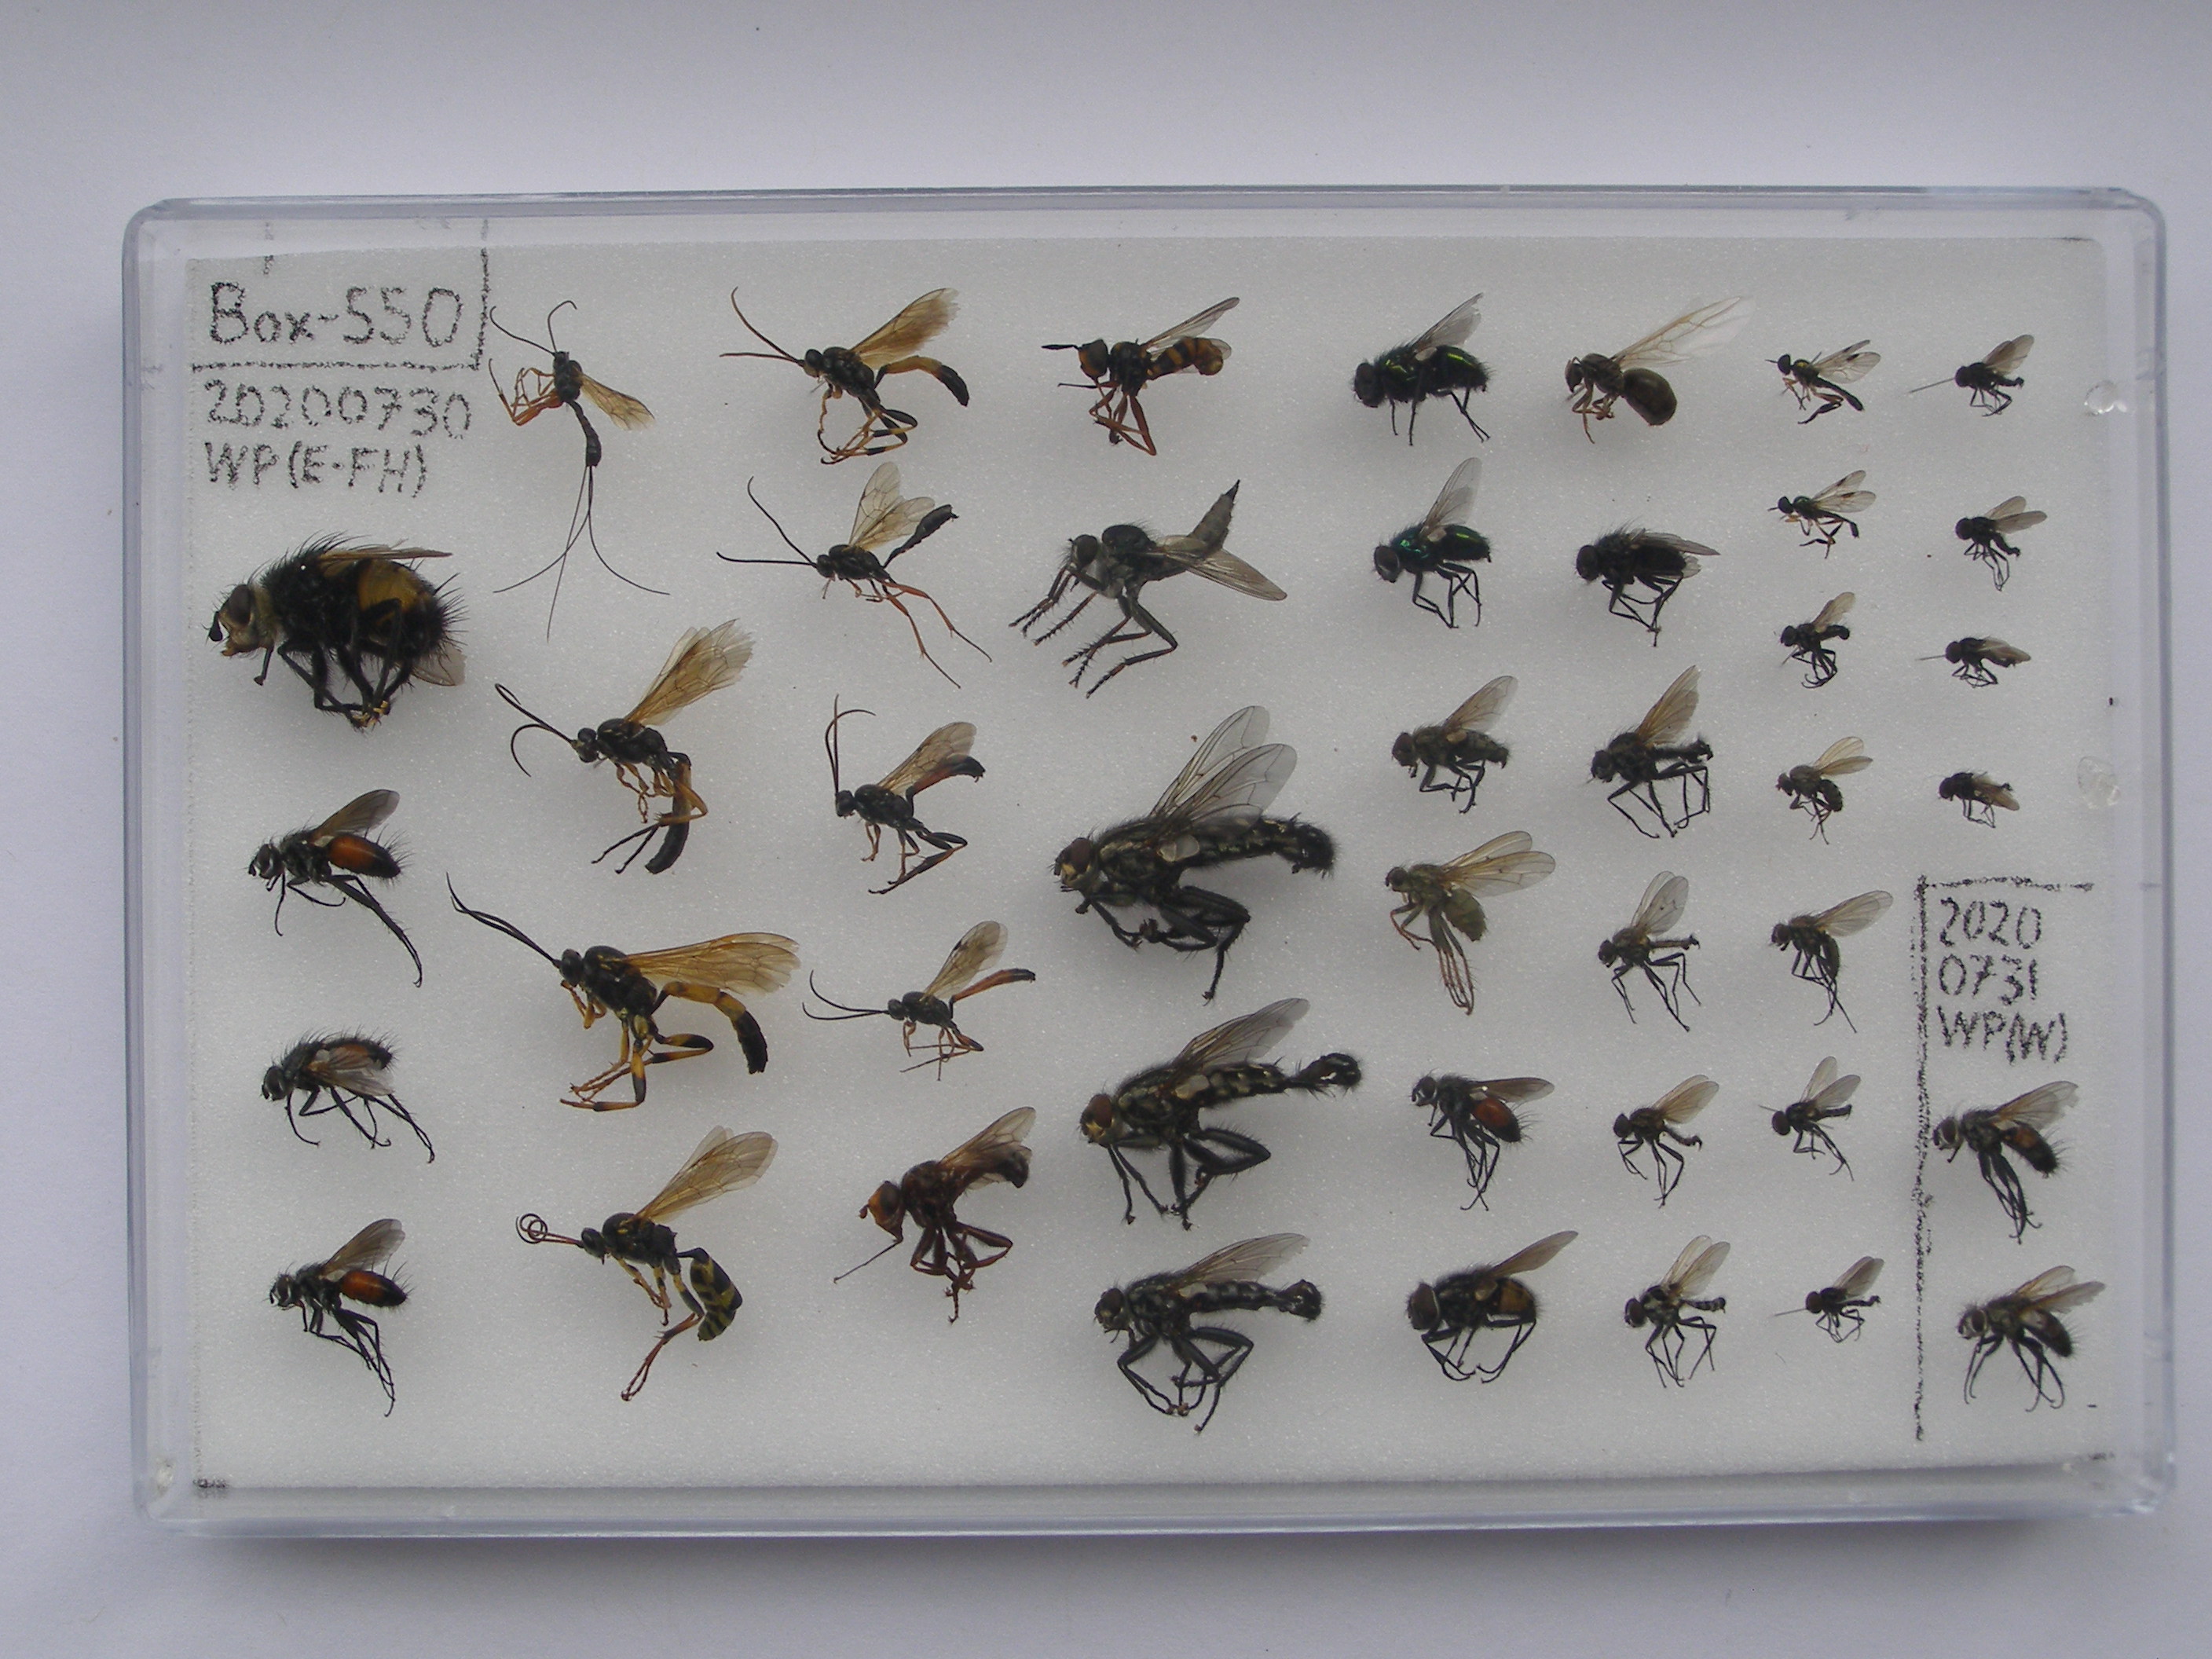 Box-550
20200730
WP(E-FH)
2020
0731
WP(W)